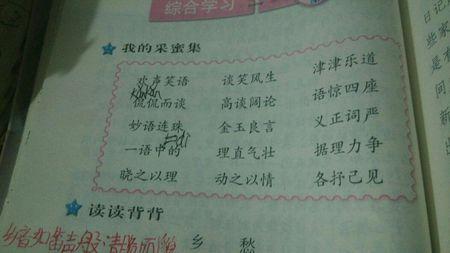 综合学习
日记
我的采蜜集
些家
欢声笑语 谈笑风生 津津乐道
是有
侃侃而谈 高谈阔论 语惊四座
同
妙语连珠 金玉良言 义正词严
新
一语中的 理直气壮 据理力争
出
晓之以理 动之以情 各抒己见
读读背背
乡愁